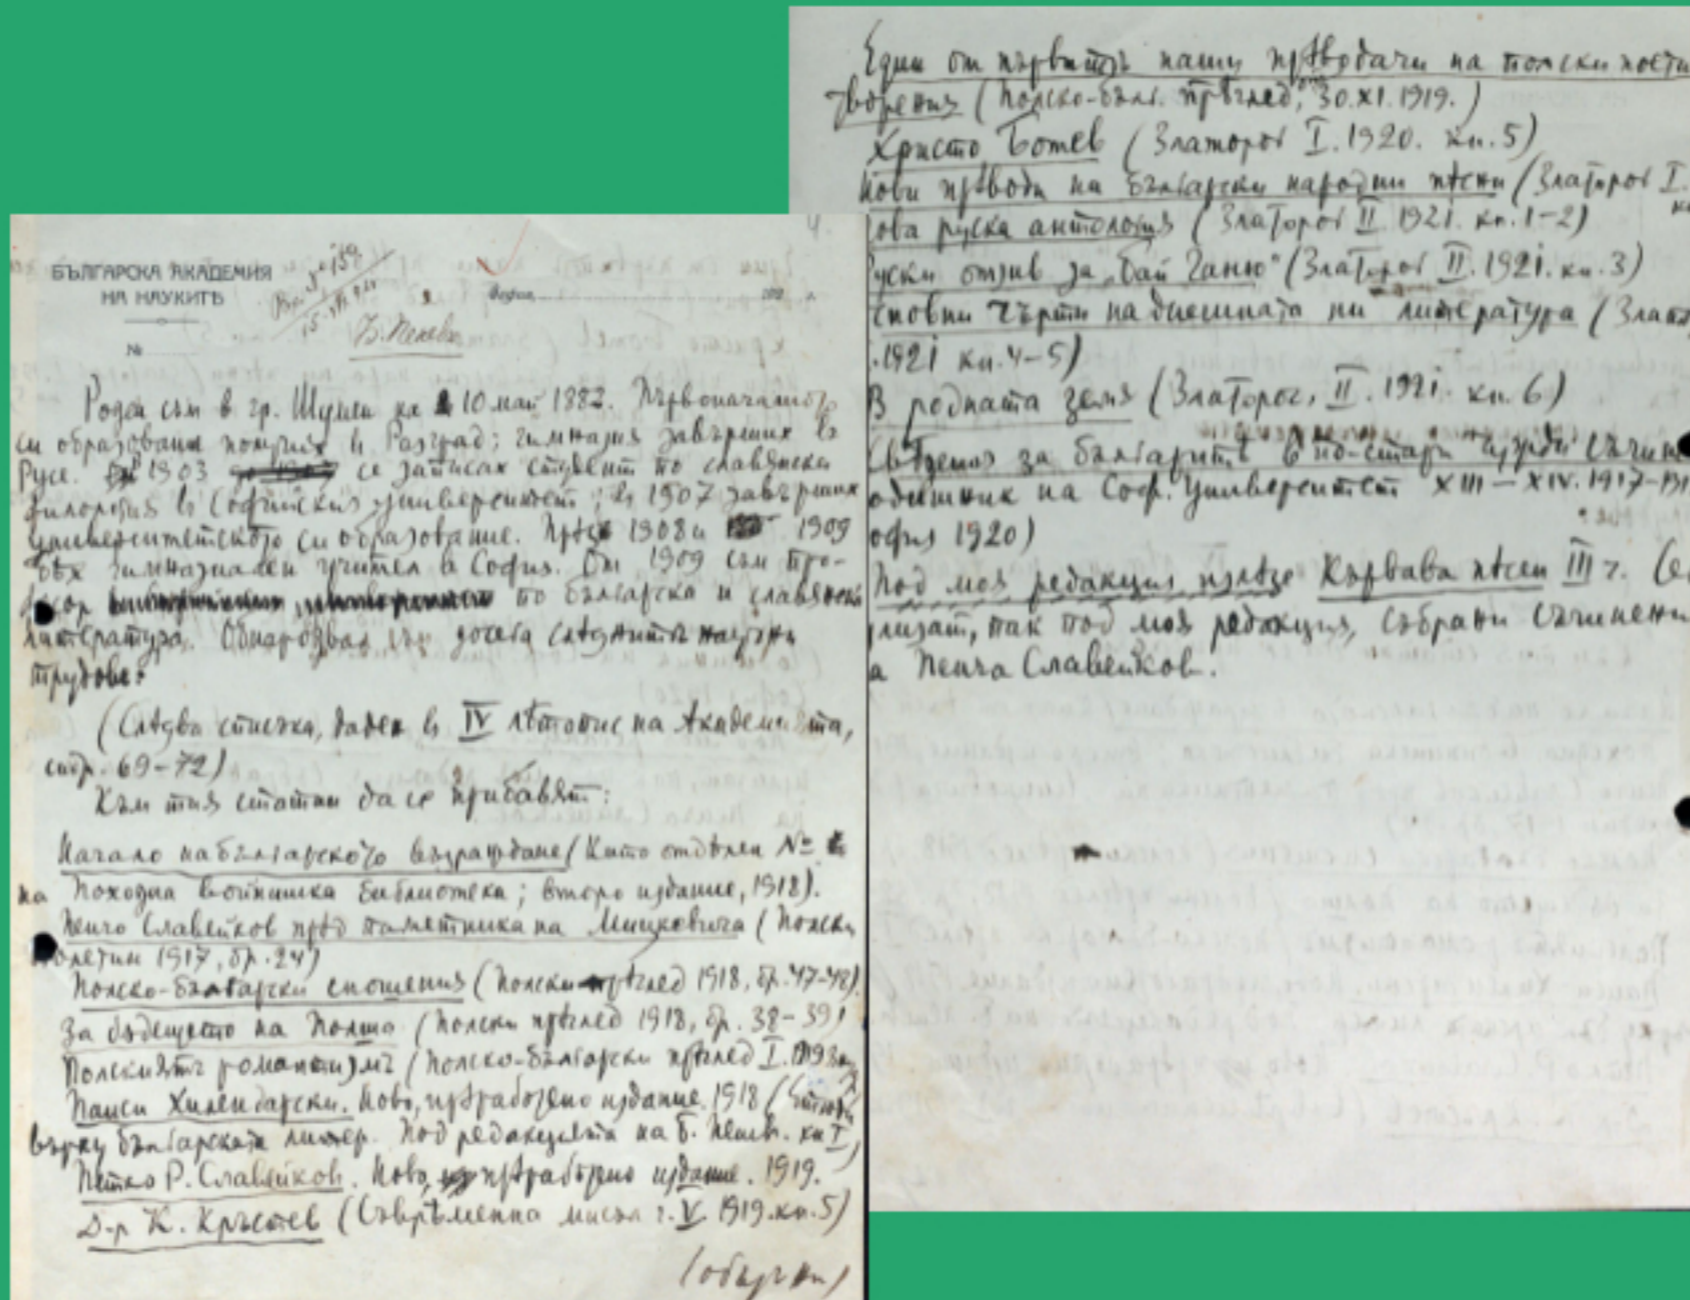 БЪЛГАРСКА АКАДЕМИЯ
НА НАУКИТѢ
№
София
Б. Пенев
Роден съм в гр. Шумен на 10 май 1882. Първоначалното
си образование получих в Разград; гимназия завърших в
Русе. 1903 се записах студент по славянска
филология в Софийския университет; в 1907 завърших
университетското си образование. Прѣз 1908 и 1909
бѣх гимназиален учител в София. От 1909 съм про-
фесор по българска и славянска
литература. Обнародвал съм досега слѣднитѣ научни
трудове:
(Слѣдва списъка, даден в IV лѣтопис на Академията,
стр. 69-72)
Към тия статии да се прибавят:
Начало на българското възраждане (Като отдѣлен №
на Походна войнишка библиотека; второ издание, 1918).
Пенчо Славейков прѣд паметника на Мицкевича (Полски
бюлетин 1917, бр. 24)
Полско-български сношения (Полски прѣглед 1918, бр. 47-48)
За бъдещето на Полша (Полски прѣглед 1918, бр. 38-39)
Полскиятъ романтизмъ (Полско-български прѣглед I.
Паиси Хилендарски. Ново, прѣработено издание. 1918
върху българската литер. Под редакцията на Б. Пенев. кн I)
Петко Р. Славейков. Ново, прѣработено издание. 1919.
Д-р К. Кръстев (Съврѣменна мисъл г. V 1919. кн. 5)
(обърни)
Един от първитѣ наши прѣводачи на полски поети
творения (Полско-бълг. прѣглед, 30.XI.1919.)
Христо Ботев (Златорог I. 1920. кн. 5)
Нови прѣводи на български народни пѣсни (Златорог I.
ова руска антология (Златорог II 1921. кн. 1-2)
уски отзив за „Бай Ганю" (Златорог II. 1921. кн. 3)
сновни чърти на днешната ни литература (Злат
.1921 кн. 4-5)
В родната земя (Златорог, II. 1921. кн. 6)
Свѣдения за българитѣ в по-стари чужди съчине
одишник на Соф. Университет XIII-XIV. 1917-191
офия 1920)
Под моя редакция излѣзе Кървава пѣсен III ч. (
лизат, пак под моя редакция, събрани съчинени
а Пенча Славейков.